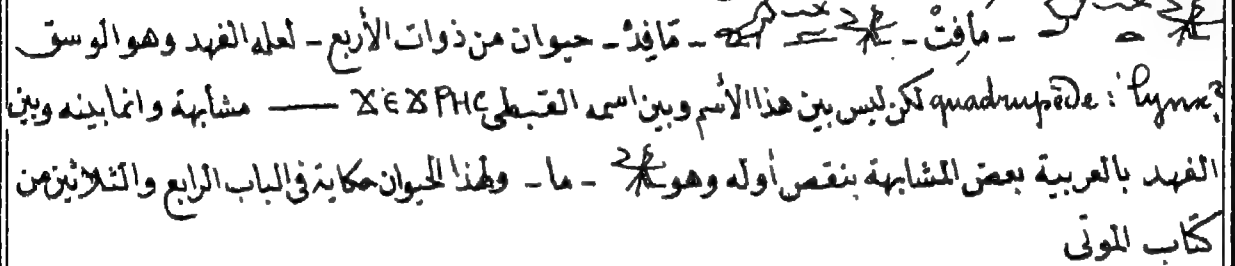 - مافِتْ - - مَافِدْ - حيوان من ذوات الأربع - لعله الفهد وهو الوسق
quadrupède : lynx? لكن ليس بين هذا الأسم وبين اسمه القبطى ϪЄϪΡΗС — مشابهة وانما بينه وبين
الفهد بالعربية بعض المشابهة بنقص أوله وهو - ما - ولهذا الحيوان حكاية فى الباب الرابع والثلاثين من
كتاب الموتى